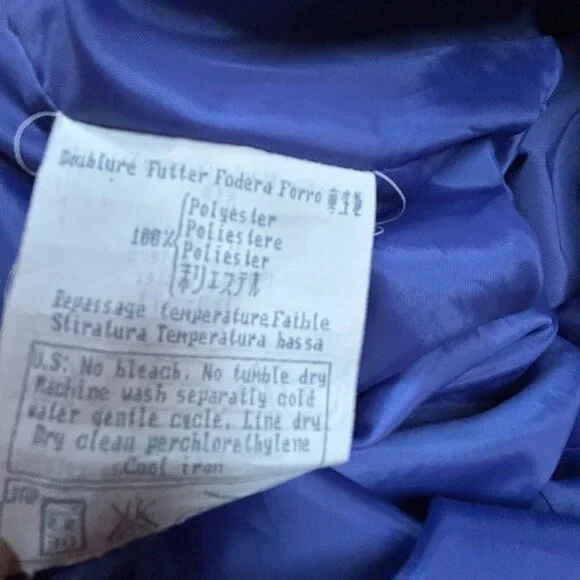 Doublure Futter Fodera Forro
Polyester
100% Poliestere
Poliester
ポリエステル
Repassage température Faible
Stiratura Temperatura bassa
U.S: No bleach. No tumble dry
Machine wash separatly cold
water gentle cycle. Line dry
Dry clean perchlorethylene
Cool iron